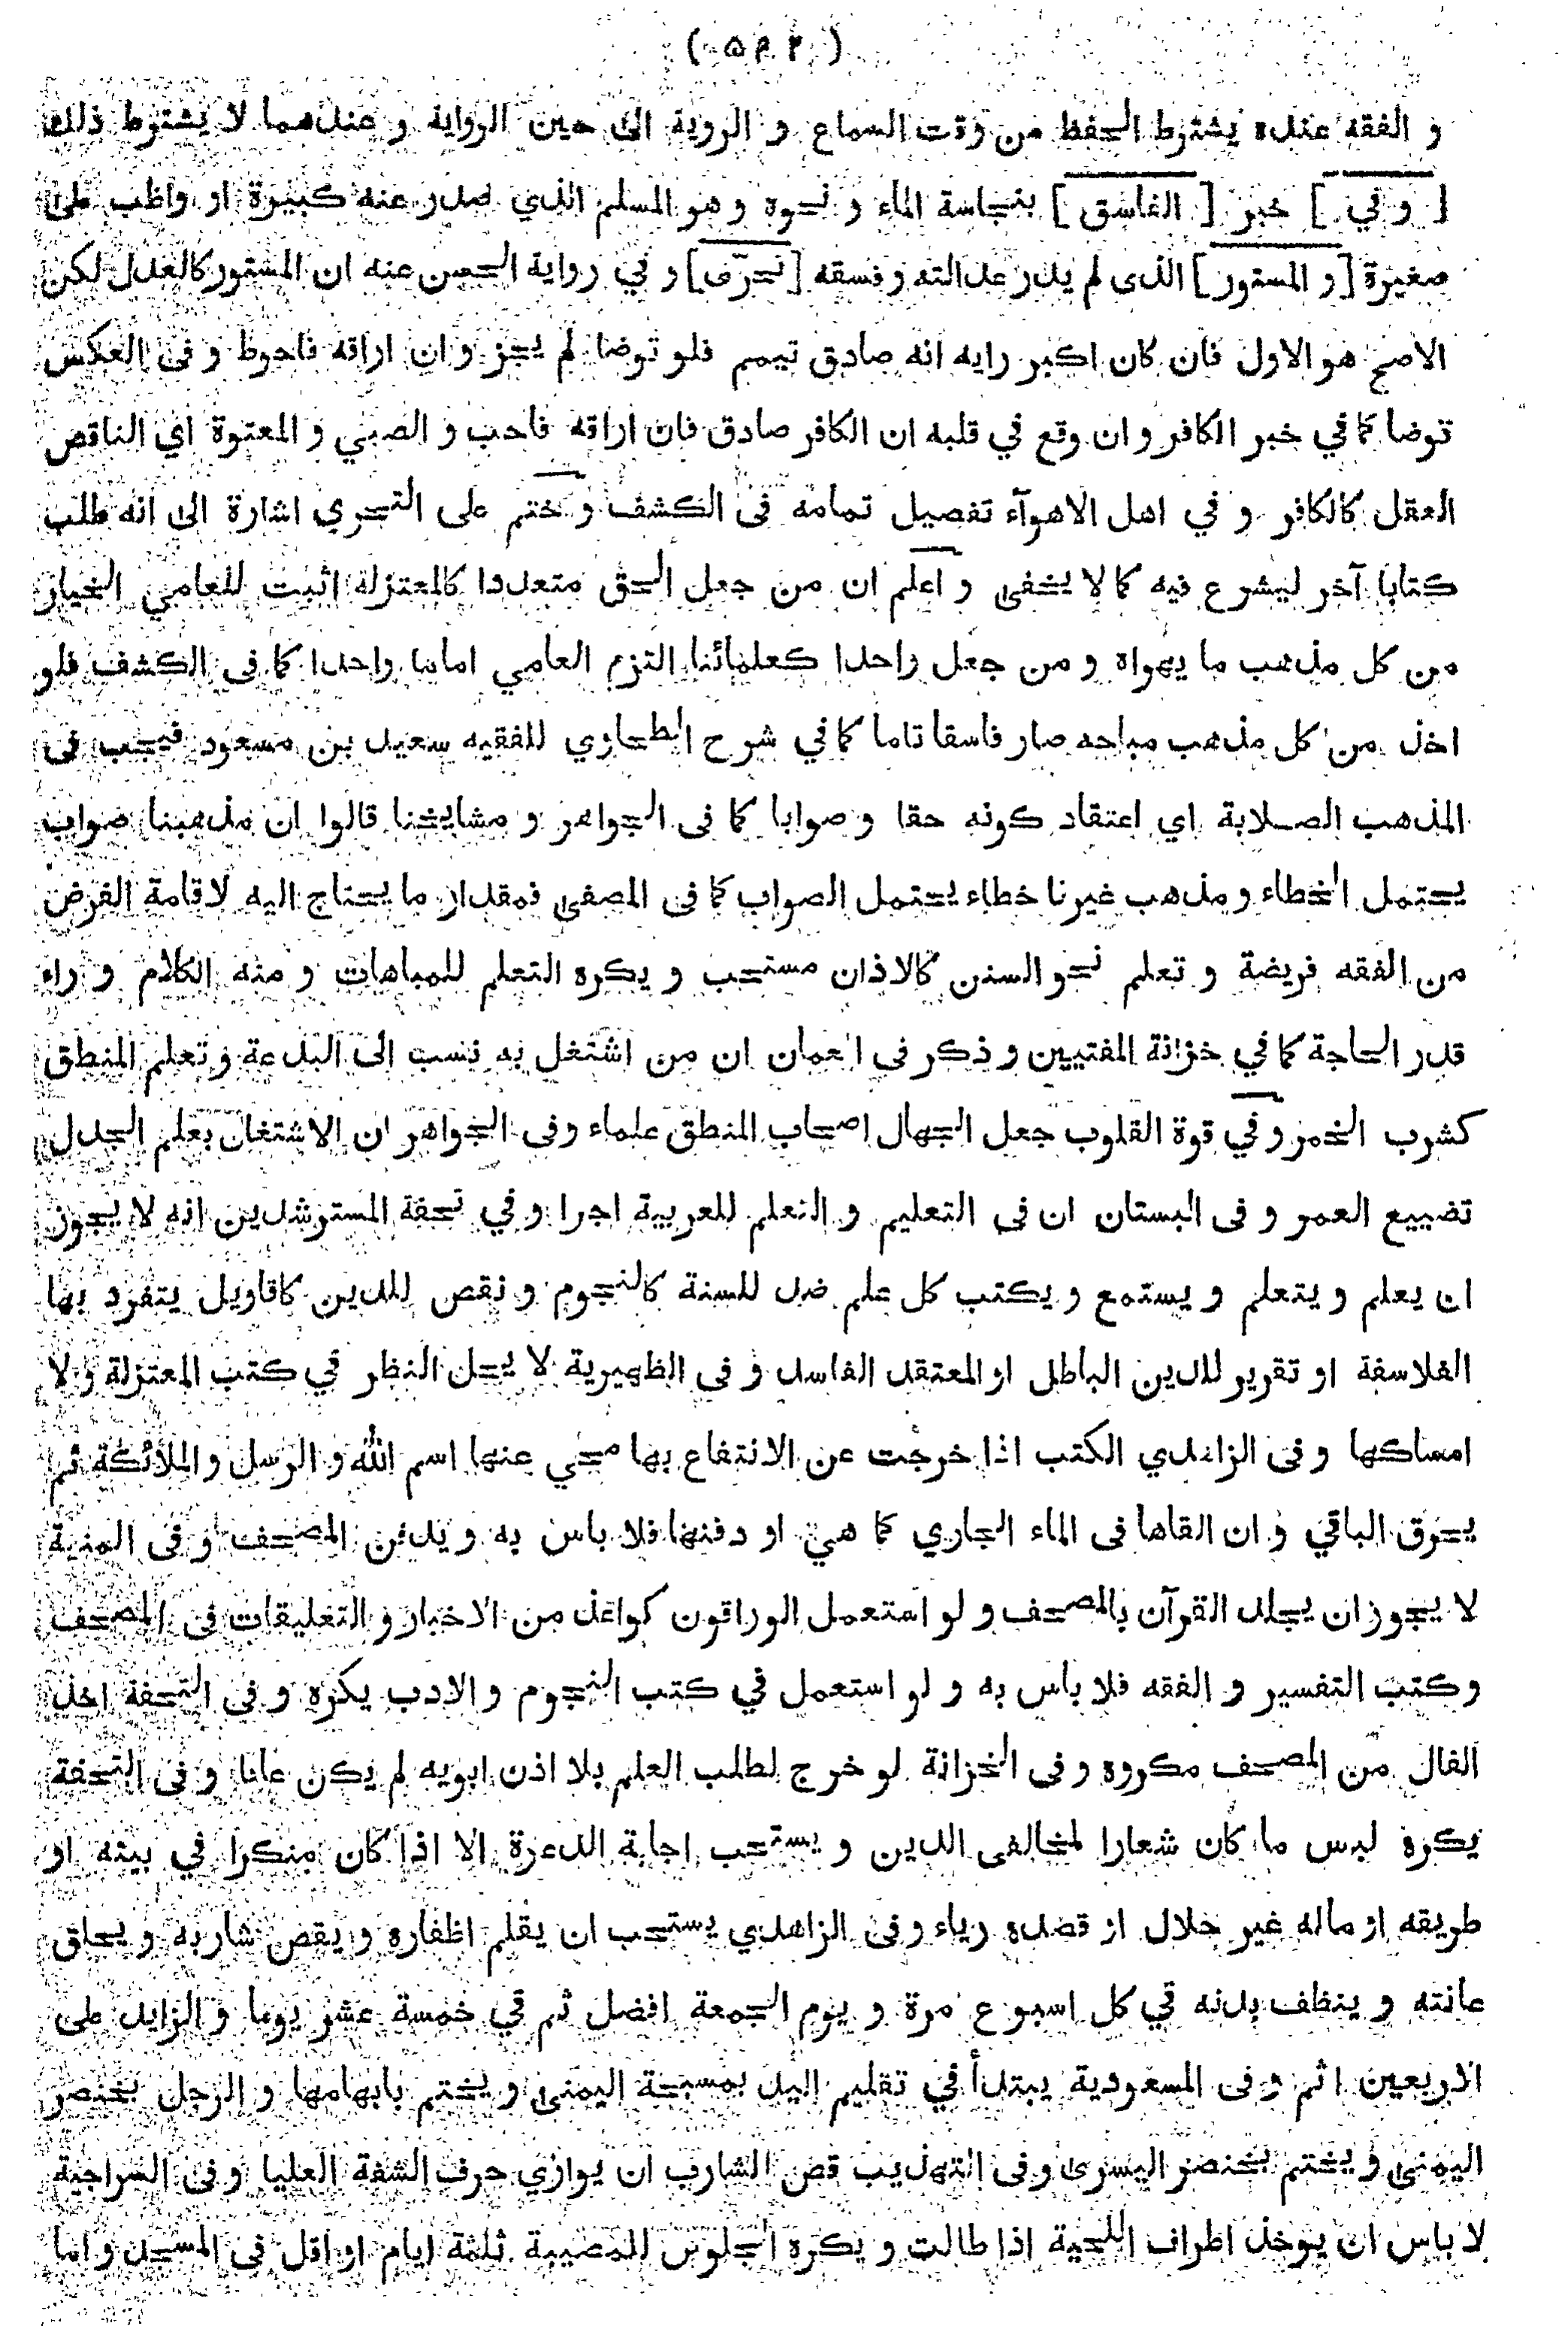 ( ۵۴۲ )
و الفقه عنده يشترط الحفظ من وقت السماع و الروية الى حين الرواية و عندهما لا يشترط ذلك
[ و في ] خبر [ الفاسق ] بنجاسة الماء و نحوه و هو المسلم الذي صدر عنه كبيرة او واظب على
صغيرة [ و المستور ] الذى لم يدر عدالته و فسقه [ تحرّى ] و في رواية الحسن عنه ان المستور كالعدل لكن
الاصح هو الاول فان كان اكبر رايه انه صادق تيمم فلو توضا لم يجز و ان اراقه فاحوط و فى العكس
توضا كما في خبر الكافر و ان وقع في قلبه ان الكافر صادق فان اراقه فاحب و الصبي و المعتوة اي الناقص
العقل كالكافر و في اهل الاهوآء تفصيل تمامه فى الكشف و ختم على التحري اشارة الى انه طلب
كتابا آخر ليشرع فيه كما لا يخفى و اعلم ان من جعل الحق متعددا كالمعتزلة اثبت للعامي الخيار
من كل مذهب ما يهواه و من جعل واحدا كعلمائنا التزم العامي اماما واحدا كما فى الكشف فلو
اخذ من كل مذهب مباحه صار فاسقا تاما كما في شرح الطحاوي للفقيه سعيد بن مسعود فيجب فى
المذهب الصلابة اي اعتقاد كونه حقا و صوابا كما فى الجواهر و مشايخنا قالوا ان مذهبنا صواب
يحتمل الخطاء و مذهب غيرنا خطاء يحتمل الصواب كما فى المصفى فمقدار ما يحتاج اليه لاقامة الفرض
من الفقه فريضة و تعلم نحو السنن كالاذان مستحب و يكره التعلم للمباهات و منه الكلام و راء
قدر الحاجة كما في خزانة المفتيين و ذكر فى العمان ان من اشتغل به نسب الى البدعة و تعلم المنطق
كشرب الخمر و في قوة القلوب جعل الجهال اصحاب المنطق علماء و فى الجواهر ان الاشتغال بعلم الجدل
تضييع العمر و فى البستان ان فى التعليم و التعلم للعربية اجرا و في تحفة المسترشدين انه لا يجوز
ان يعلم و يتعلم و يستمع و يكتب كل علم ضد للسنة كالنجوم و نقص للدين كاقاويل يتفرد بها
الفلاسفة او تقرير للدين الباطل او المعتقد الفاسد و فى الظهيرية لا يحل النظر في كتب المعتزلة و لا
امساكها و فى الزاهدي الكتب اذا خرجت عن الانتفاع بها محي عنها اسم الله و الرسل و الملائكة ثم
يحرق الباقي و ان القاها فى الماء الجاري كما هي او دفنها فلا باس به و يدفن المصحف و فى المنية
لا يجوز ان يجلد القرآن بالمصحف و لو استعمل الوراقون كواغذ من الاخبار و التعليقات فى المصحف
و كتب التفسير و الفقه فلا باس به و لو استعمل في كتب النجوم و الادب يكره و فى التحفة اخذ
الفال من المصحف مكروه و فى الخزانة لو خرج لطلب العلم بلا اذن ابويه لم يكن عاقا و فى التحفة
يكره لبس ما كان شعارا لمخالفى الدين و يستحب اجابة الدعوة الا اذا كان منكرا في بيته او
طريقه او ماله غير حلال او قصده رياء و فى الزاهدي يستحب ان يقلم اظفاره و يقص شاربه و يحلق
عانته و ينظف بدنه في كل اسبوع مرة و يوم الجمعة افضل ثم في خمسة عشر يوما و الزايد على
الاربعين اثم و فى المسعودية يبتدأ في تقليم اليد بمسبحة اليمنى و يختم بابهامها و الرجل بخنصر
اليمنى و يختم بخنصر اليسرى و فى التهذيب قص الشارب ان يوازي حرف الشفة العليا و فى السراجية
لا باس ان يوخذ اطراف اللحية اذا طالت و يكره الجلوس للمصيبة ثلثة ايام او اقل فى المسجد و اما